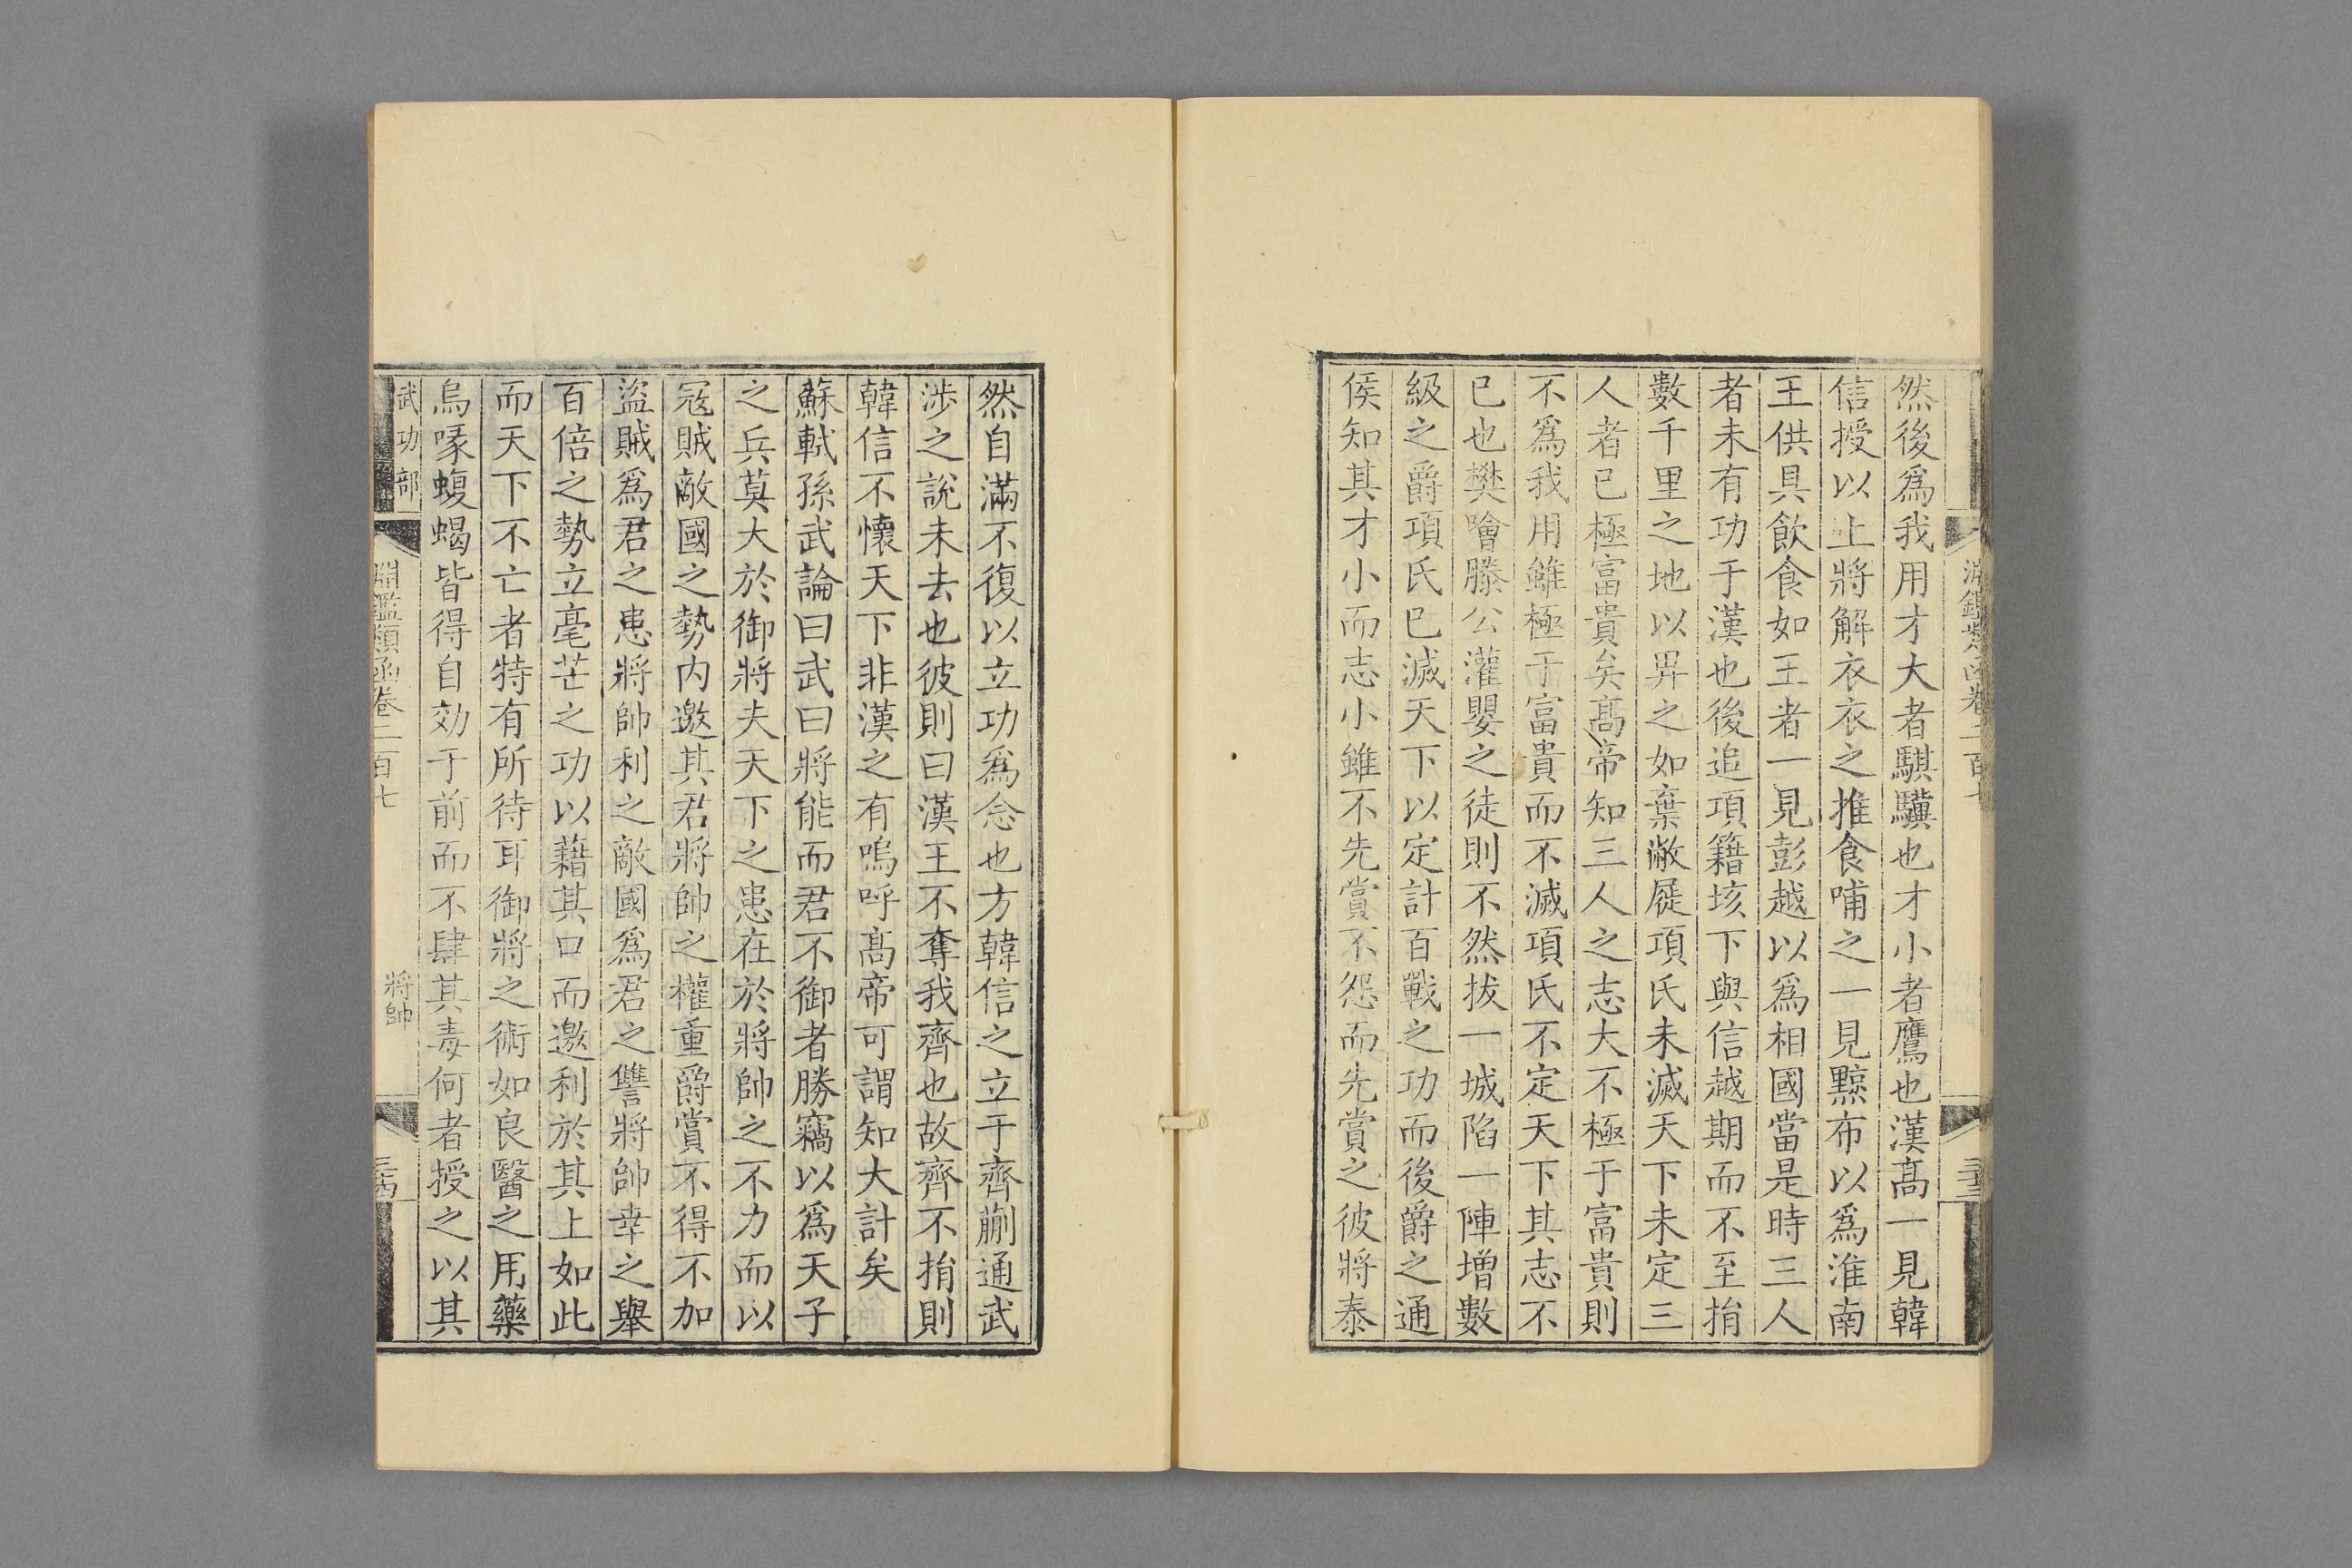 然後爲我用才大者騏驥也才小者鷹也漢髙一見韓
信授以上將解衣衣之推食哺之一見黥布以爲淮南
王供具飲食如王者一見彭越以爲相國當是時三人
者未有功于漢也後追項籍垓下與信越期而不至捐
數千里之地以畀之如棄敝屣項氏未滅天下未定三
人者已極富貴矣髙帝知三人之志大不極于富貴則
不爲我用雖極于富貴而不滅項氏不定天下其志不
已也樊噲滕公灌嬰之徒則不然拔一城陷一陣增數
級之爵項氏已滅天下以定計百戰之功而後爵之通
侯知其才小而志小雖不先賞不怨而先賞之彼將泰
然自滿不復以立功爲念也方韓信之立于齊蒯通武
涉之說未去也彼則曰漢王不奪我齊也故齊不捐則
韓信不懷天下非漢之有嗚呼髙帝可謂知大計矣
蘇軾孫武論曰武曰將能而君不御者勝竊以爲天子
之兵莫大於御將夫天下之患在於將帥之不力而以
冦賊敵國之勢内邀其君將帥之權重爵賞不得不加
盜賊爲君之患將帥利之敵國爲君之讐將帥幸之舉
百倍之勢立毫芒之功以藉其口而邀利於其上如此
而天下不亡者特有所待耳御將之術如良醫之用藥
烏喙蝮蝎皆得自効于前而不肆其毒何者授之以其
武功部
淵鑑類函卷二百七
將帥
三四